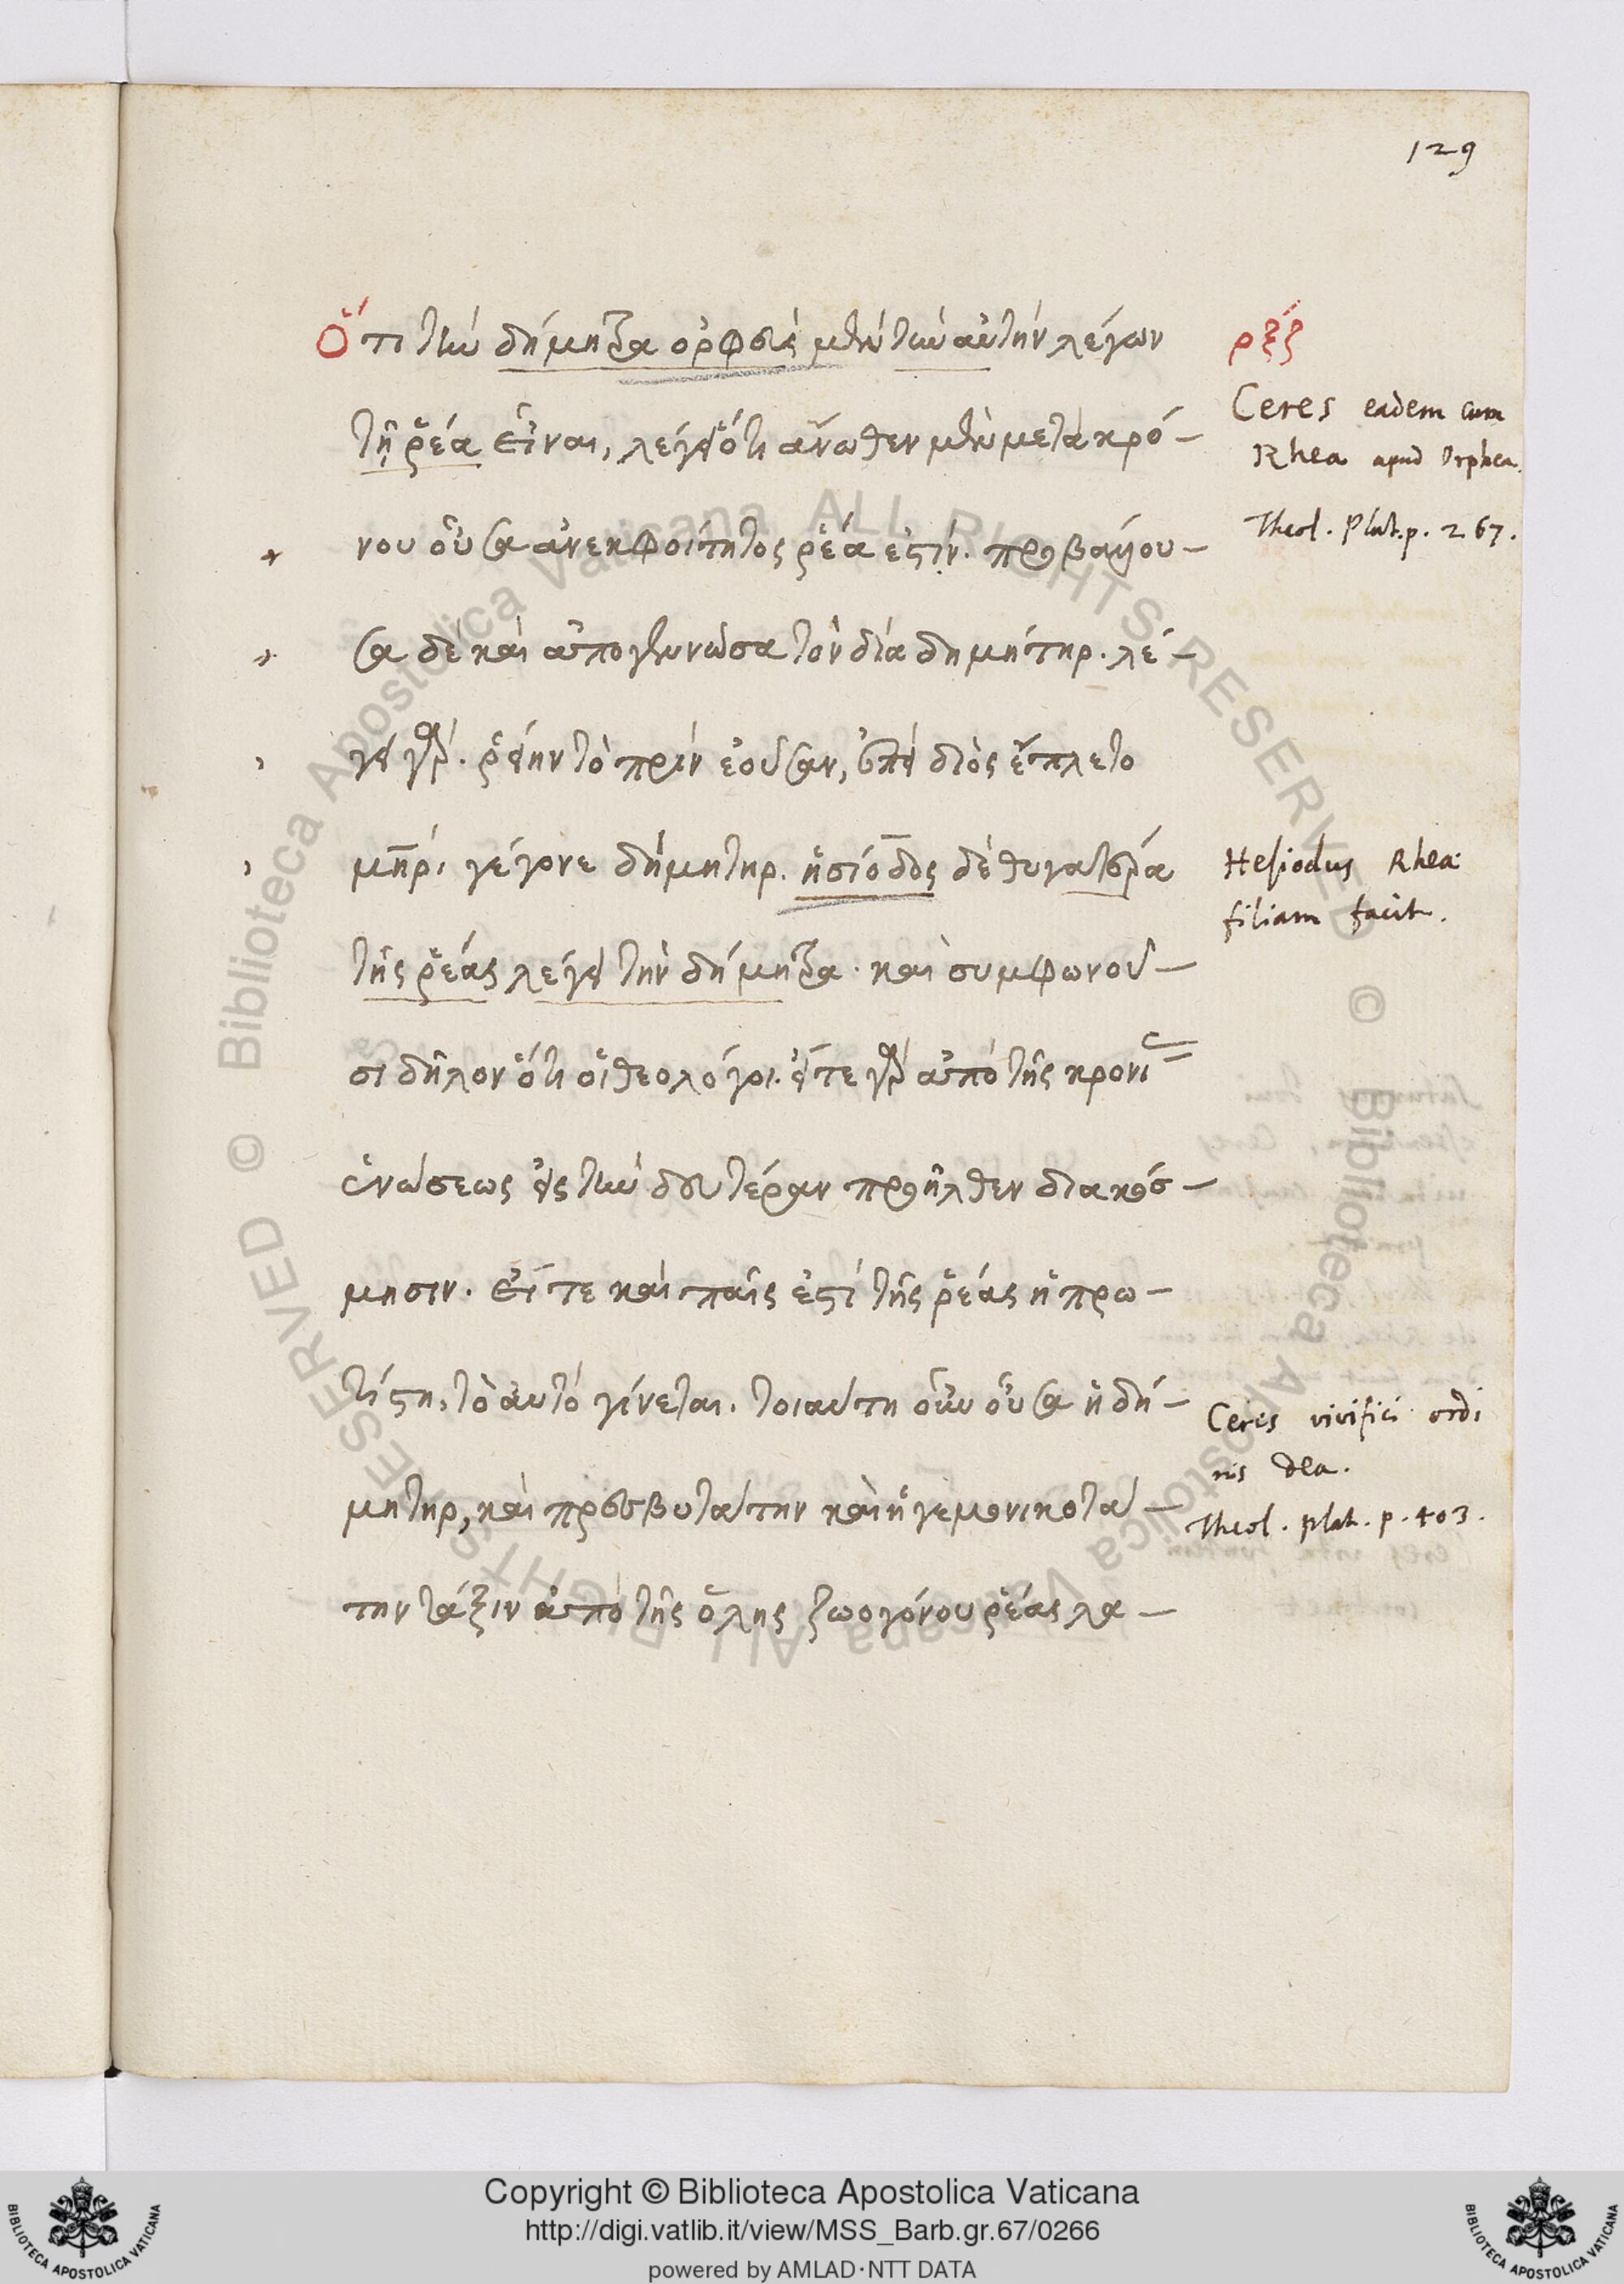 129
Ὅτι τὴν δήμητρα ὀρφεὺς μὲν τὴν αὐτὴν λέγων
τῇ ῥέᾳ εἶναι, λέγει ὅτι ἄνωθεν μὲν μετὰ κρό-
νου οὖσα ἀνεκφοίτητος ῥέα ἐστίν. προβάλλου-
σα δὲ καὶ ἀπογεννῶσα τὸν δία δημήτηρ. λέ-
γει γὰρ. ῥείην τὸ πρὶν ἐοῦσαν, ἐπεὶ διὸς ἔπλετο
μήτηρ γέγονε δημήτηρ. ἡσίοδος δὲ θυγατέρα
τῆς ῥέας λέγει τὴν δήμητρα. καὶ συμφωνοῦ-
σι δῆλον ὅτι οἱ θεολόγοι. εἴτε γὰρ ἀπὸ τῆς κρονί
ἑνώσεως εἰς τὴν δευτέραν προῆλθεν διακόσ-
μησιν. εἴτε καὶ παῖς ἐστὶ τῆς ῥέας ἡ πρω-
τίστη, τὸ αὐτὸ γίνεται. τοιαύτη οὖν οὖσα ἡ δη-
μήτηρ, καὶ πρεσβυτάτην καὶ ἡγεμονικοτά-
την τάξιν ἀπὸ τῆς ὅλης ζωογόνου ῥέας λα-
ρξς
Ceres eadem cum
Rhea apud Orphea.
Theol. Plat. p. 267.
Hesiodus Rhea
filiam facit.
Ceres vivifici ordi
nis dea.
Theol. plat. p. 403.
Copyright © Biblioteca Apostolica Vaticana
http://digi.vatlib.it/view/MSS_Barb.gr.67/0266
powered by AMLAD·NTT DATA
BIBLIOTECA APOSTOLICA VATICANA
BIBLIOTECA APOSTOLICA VATICANA
© Biblioteca Apostolica Vaticana ALL RIGHTS RESERVED
© Biblioteca Apostolica Vaticana ALL RIGHTS RESERVED